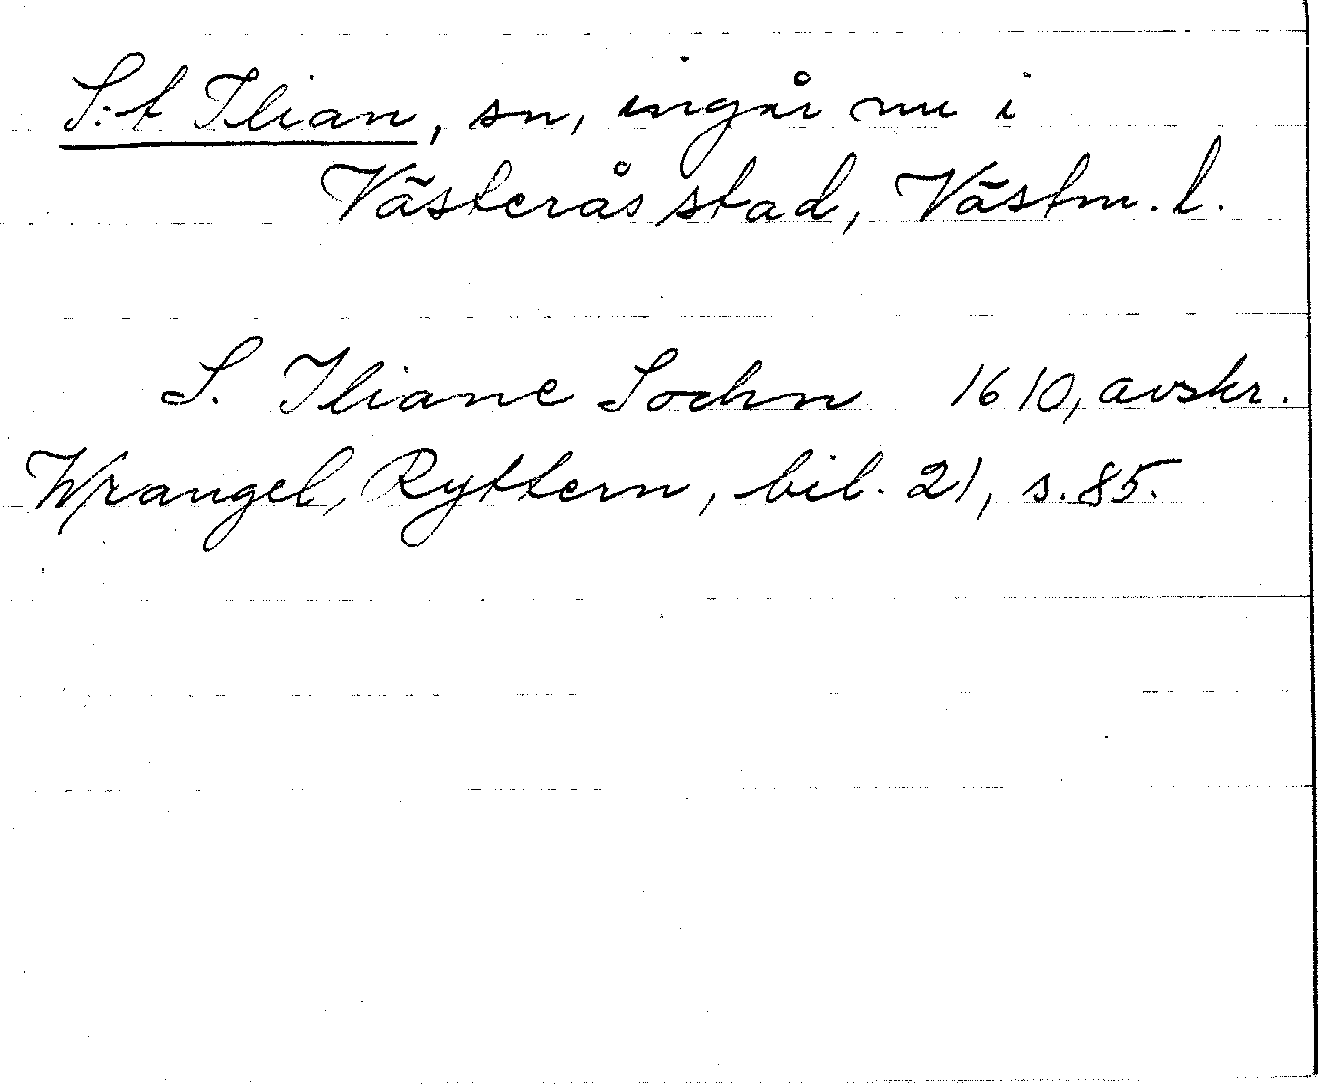 S:t Ilian, sn, ingår nu i
Västerås stad, Västm. l.
S. Iliane Sochn 1610, avskr.
Wrangel, Ryttern, bil. 21, s. 85.